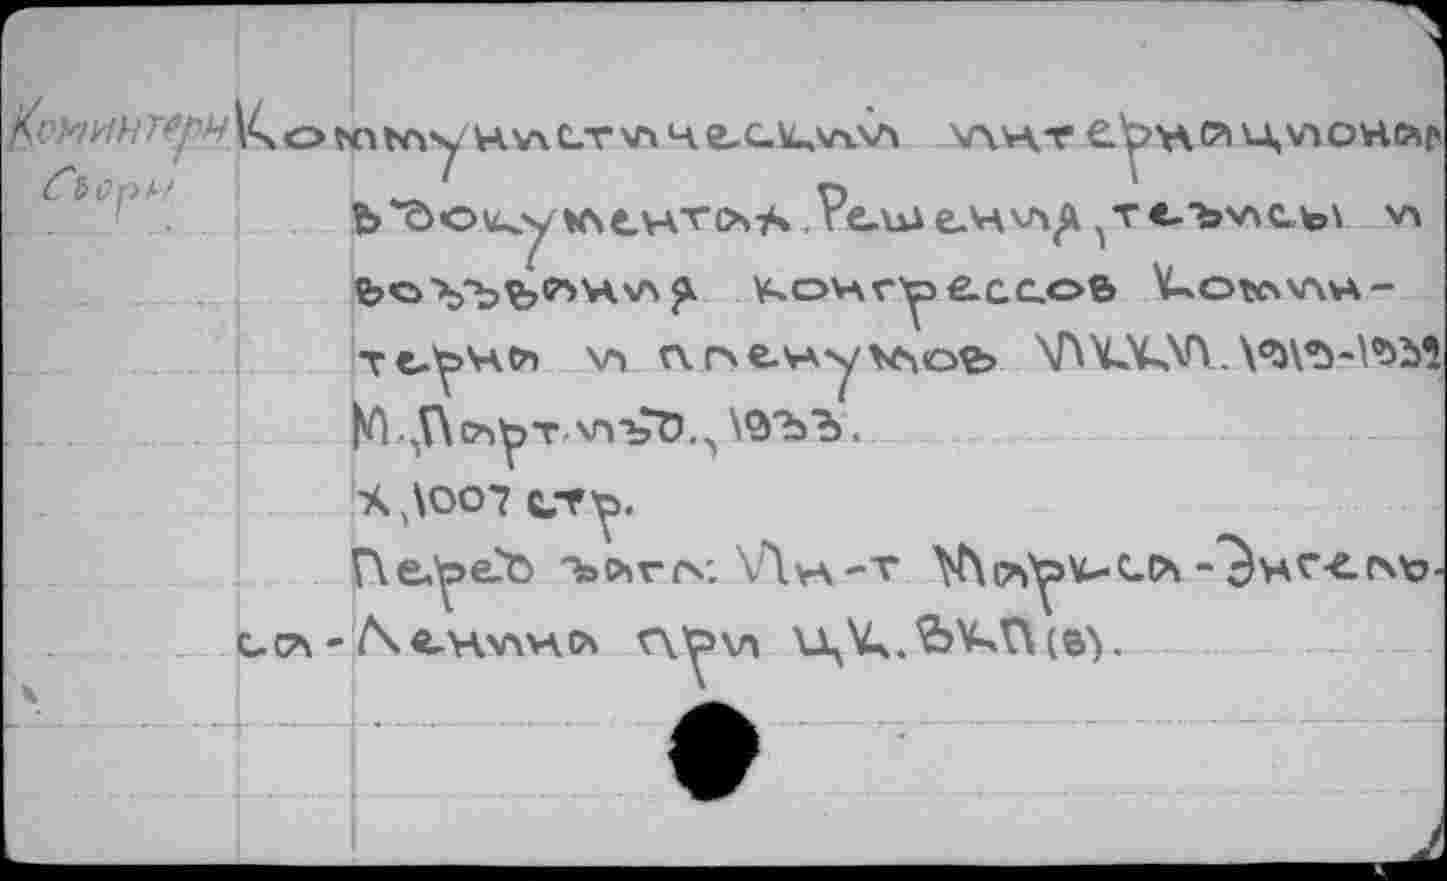 Коминтерн Коммунистический интернационал
Сборн
в документах. Решения, тезисы и
воззвания конгрессов Комин-
терна и пленумов ИККИ. 1919-1932
М., Парт. изд., 1933.
X, 1007 стр.
Перед загл: Ин-т Маркса-Энгель-
са-Ленина при ЦК.ВКП(в).